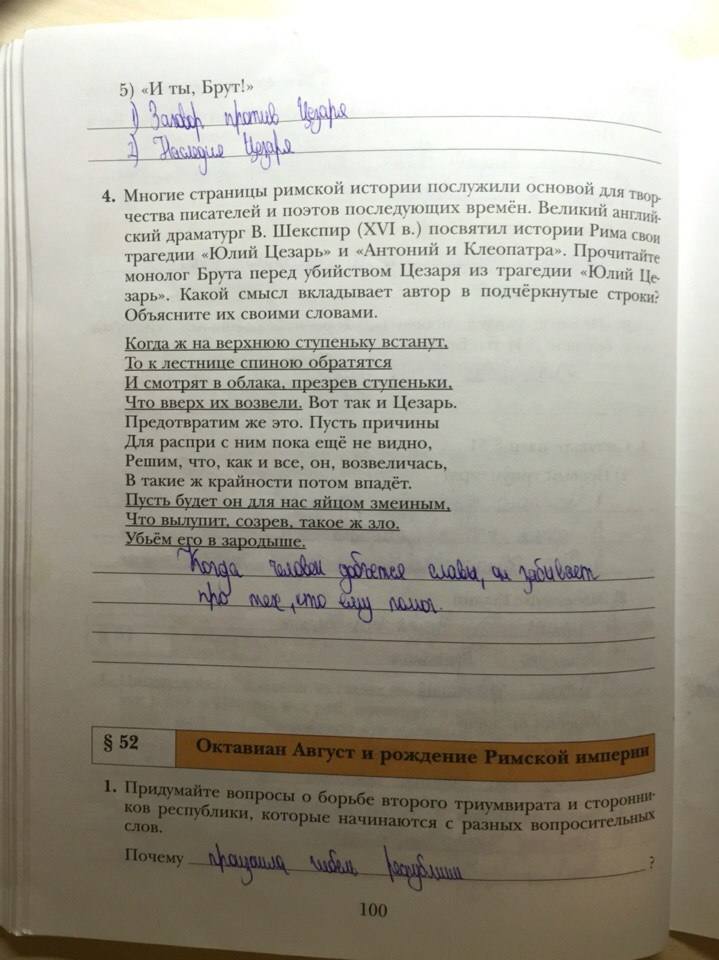 5) «И ты, Брут!»
1) Заговор против Цезаря
2) Наследия Цезаря
4. Многие страницы римской истории послужили основой для твор-
чества писателей и поэтов последующих времён. Великий англий-
ский драматург В. Шекспир (XVI в.) посвятил истории Рима свои
трагедии «Юлий Цезарь» и «Антоний и Клеопатра». Прочитайте
монолог Брута перед убийством Цезаря из трагедии «Юлий Це-
зарь». Какой смысл вкладывает автор в подчёркнутые строки?
Объясните их своими словами.
Когда ж на верхнюю ступеньку встанут,
То к лестнице спиною обратятся
И смотрят в облака, презрев ступеньки,
Что вверх их возвели. Вот так и Цезарь.
Предотвратим же это. Пусть причины
Для распри с ним пока ещё не видно,
Решим, что, как и все, он, возвеличась,
В такие ж крайности потом впадёт.
Пусть будет он для нас яйцом змеиным,
Что вылупит, созрев, такое ж зло.
Убьём его в зародыше.
Когда человек добьется славы, он забывает
про тех, кто ему помог.
§ 52
Октавиан Август и рождение Римской империи
1. Придумайте вопросы о борьбе второго триумвирата и сторонни-
ков республики, которые начинаются с разных вопросительных
слов.
Почему гибель республики ?
100